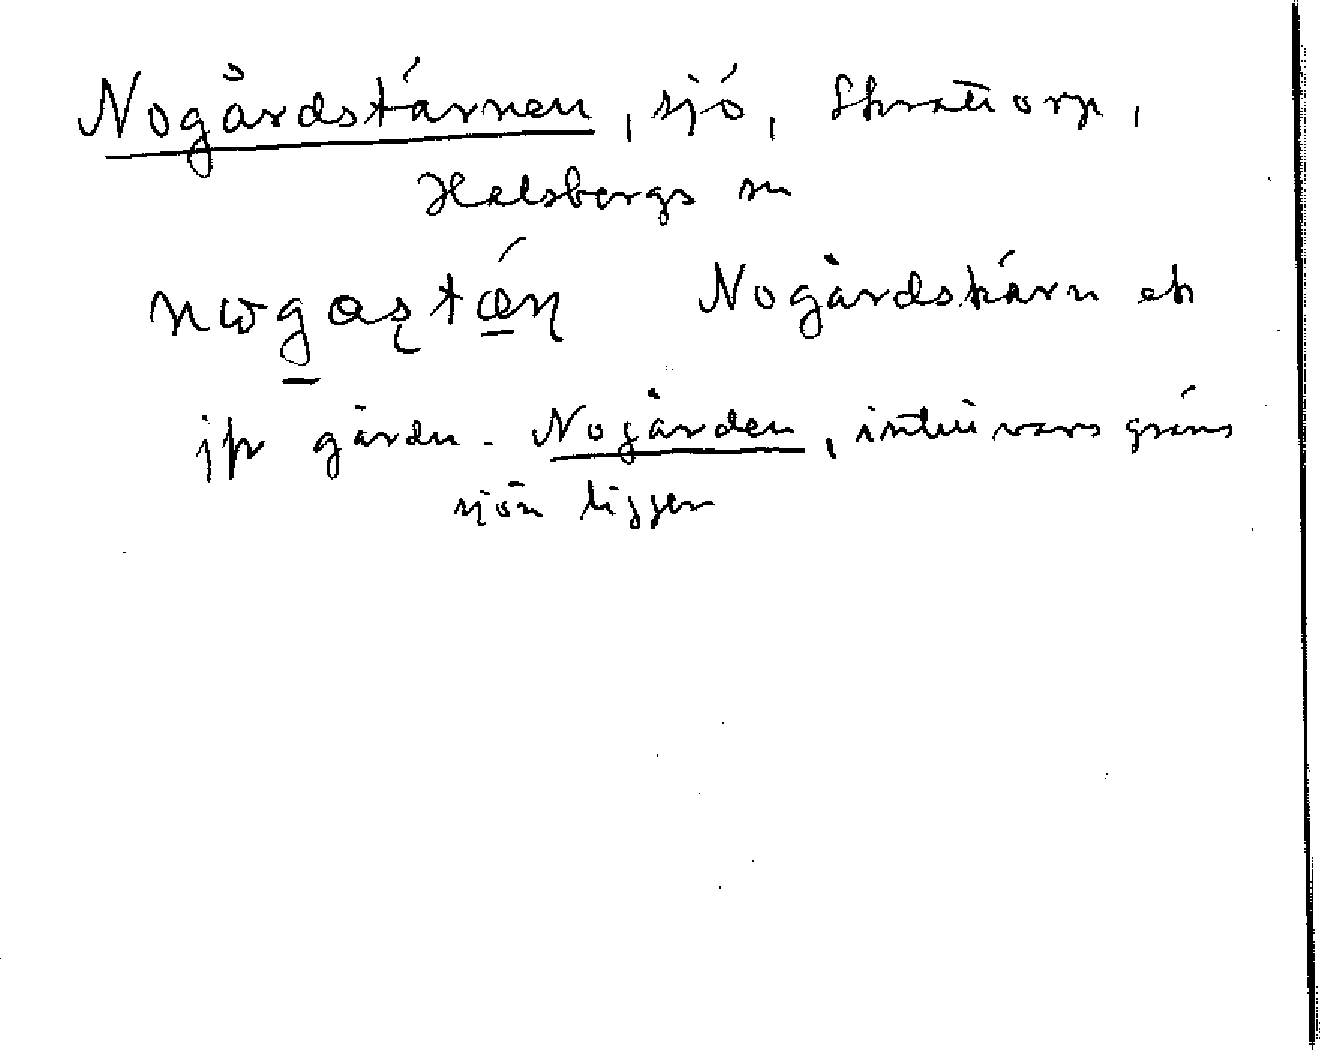 Nogårdstärnen, sjö, Skrattorp,
Halsbergs sn
Nogårdstärn ek
jfr gårdn. Nogården, intill vars gräns
sjön ligger